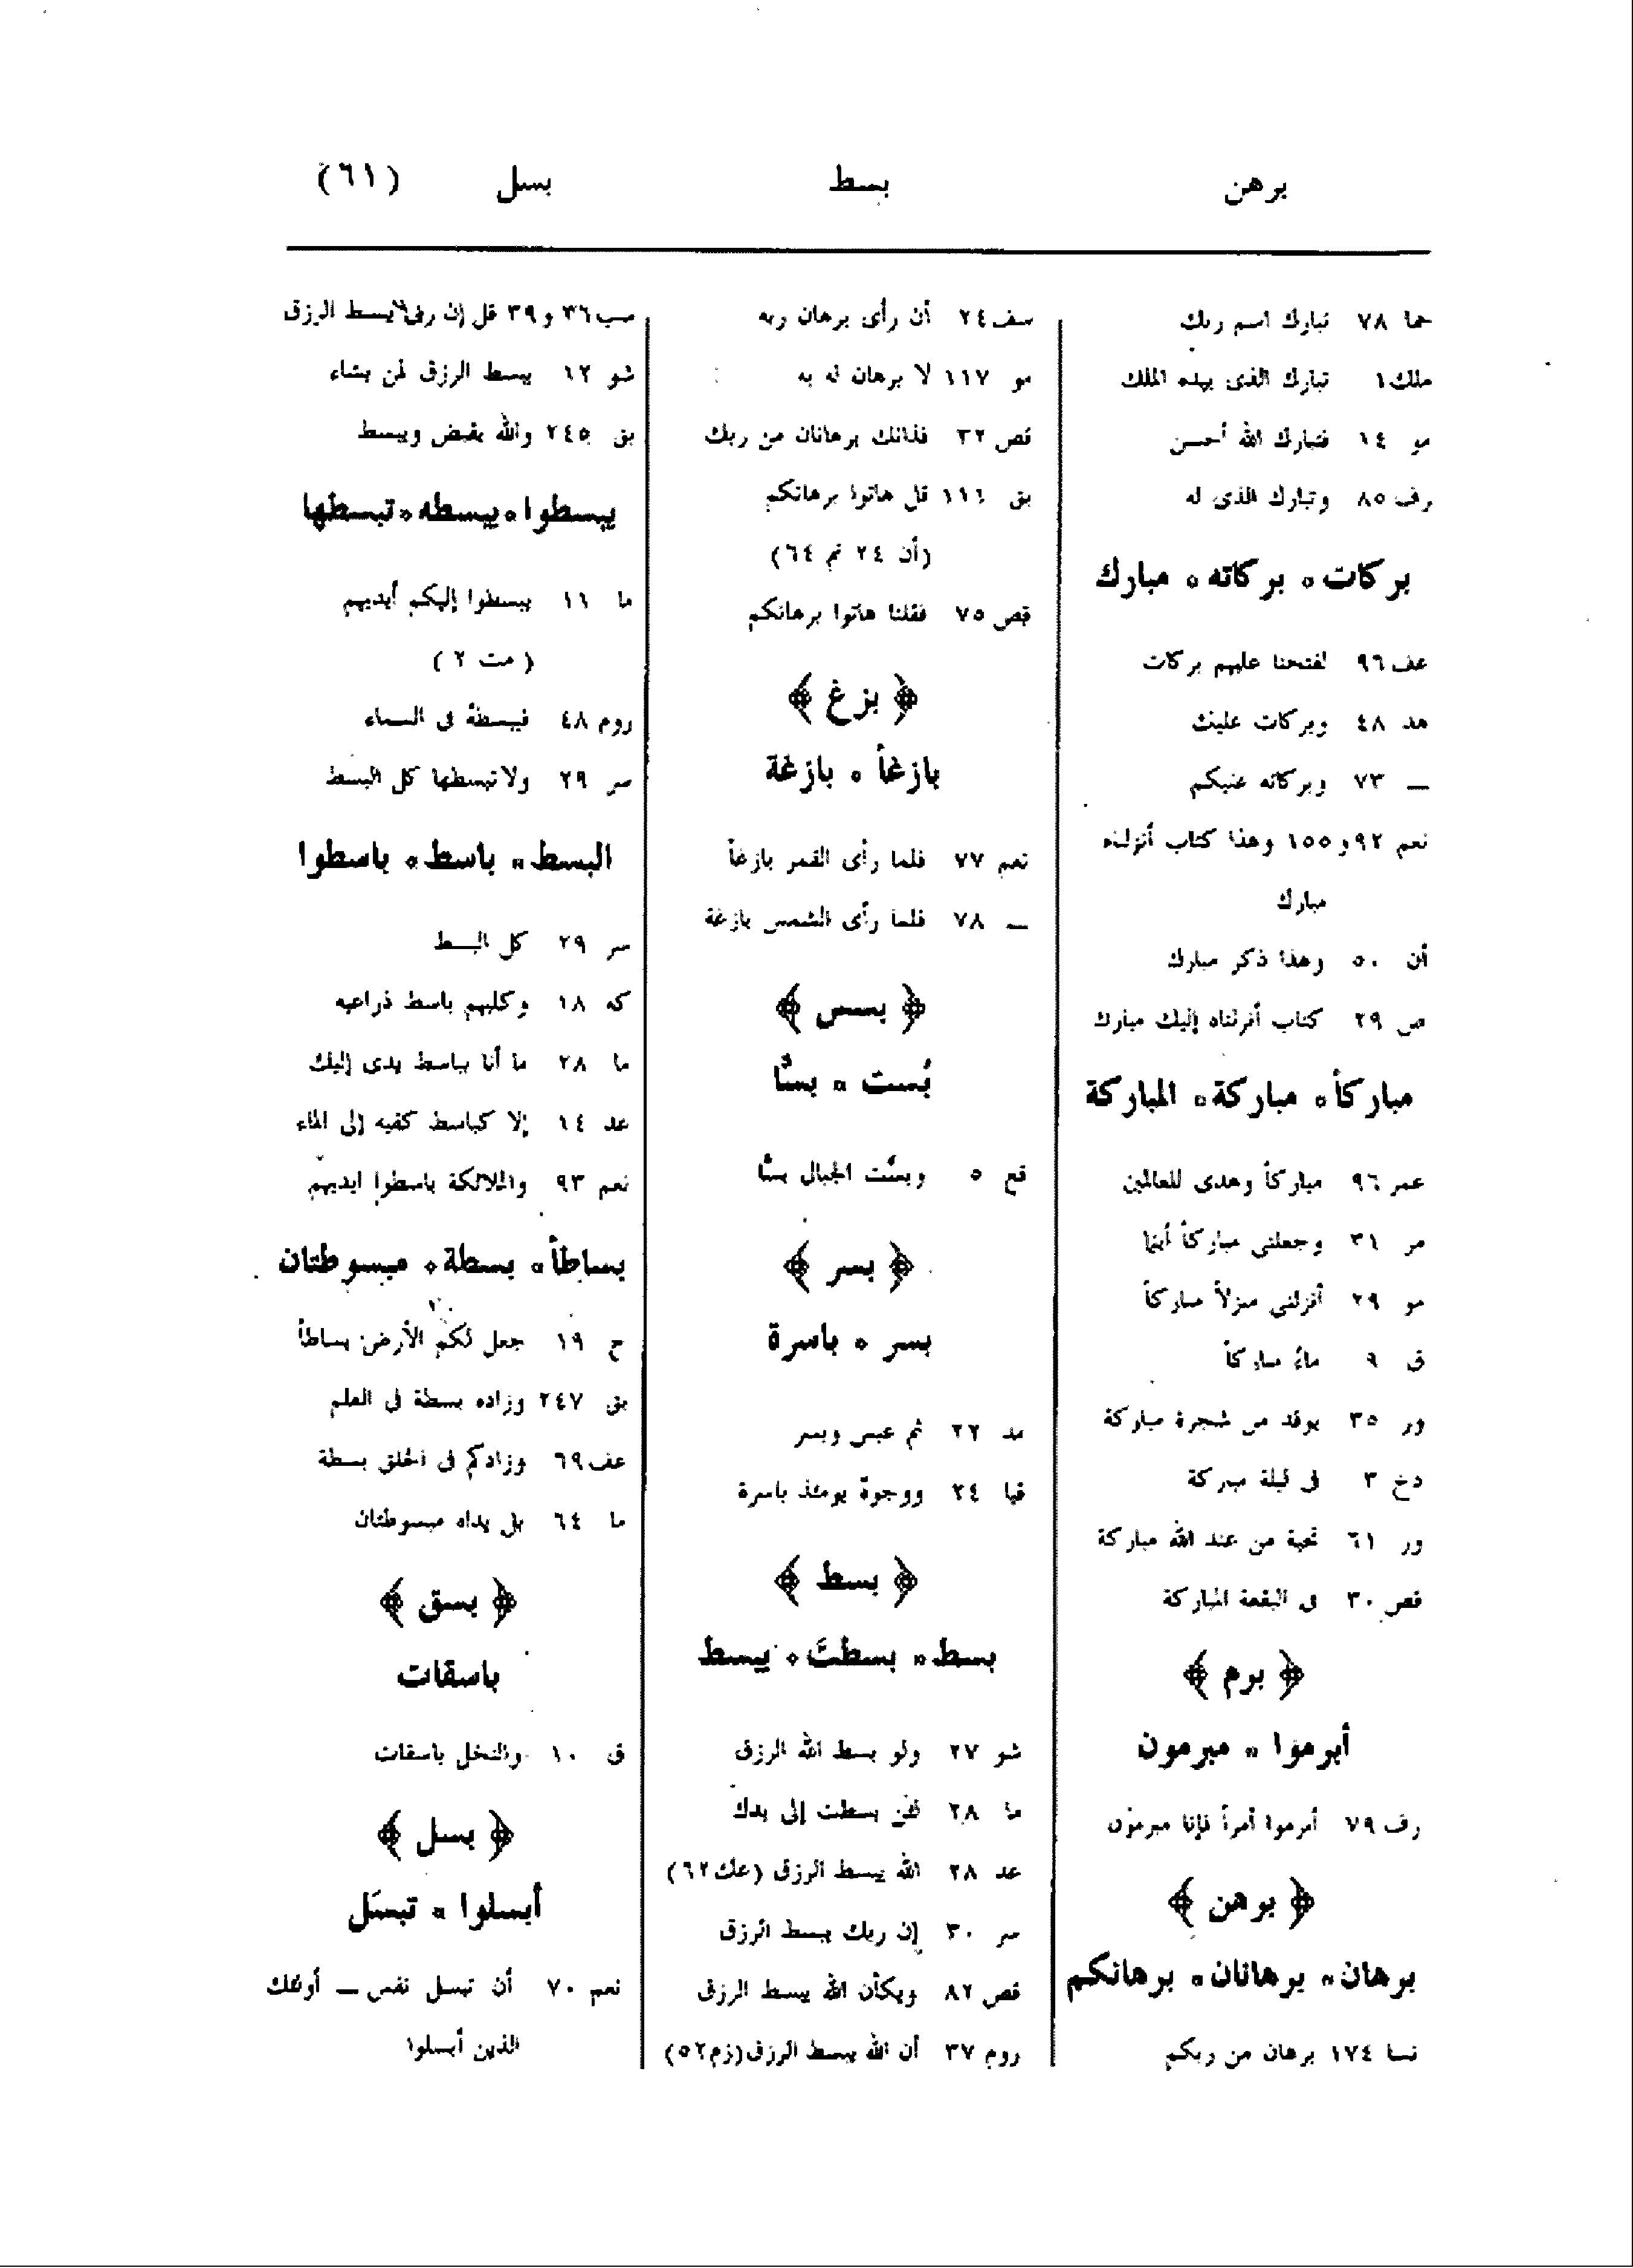 برهن
بسط
بسل (٦١)
حما ٧٨ تبارك اسم ربك
ملك١ تبارك الذى بيده الملك
مو ١٤ فتبارك الله أحسن
رف ٨٥ وتبارك الذى له
بركات ٥ بركاته ٥ مبارك
عف ٩٦ لفتحنا عليهم بركات
هد ٤٨ وبركات عليك
— ٧٣ وبركاته عليكم
نعم ٩٢ و ١٥٥ وهذا كتاب أنزلناه
مبارك
أن ٥٠ وهذا ذكر مبارك
ص ٢٩ كتاب أنزلناه إليك مبارك
مباركاً ٥ مباركة ٥ المباركة
عمر ٩٦ مباركاً وهدى للعالمين
مر ٣١ وجعلنى مباركاً أينما
مو ٢٩ أنزلنى منزلاً مباركاً
ق ٩ ماءً مباركاً
ور ٣٥ يوقد من شجرة مباركة
دخ ٣ فى ليلة مباركة
ور ٦١ تحية من عند الله مباركة
قص ٣٠ فى البقعة المباركة
﴿ برم ﴾
أبرموا ٥ مبرمون
رف ٧٩ أبرموا أمراً فإنا مبرمون
﴿ برهن ﴾
برهان ٥ برهانان ٥ برهانكم
نسا ١٧٤ برهان من ربكم
سف ٢٤ أن رأى برهان ربه
مو ١١٧ لا برهان له به
قص ٣٢ فذانك برهانان من ربك
بق ١١١ قل هاتوا برهانكم
(أن ٢٤ نم ٦٤)
قص ٧٥ فقلنا هاتوا برهانكم
﴿ بزغ ﴾
بازغاً ٥ بازغة
نعم ٧٧ فلما رأى القمر بازغاً
— ٧٨ فلما رأى الشمس بازغة
﴿ بسس ﴾
بُست ٥ بسًّا
قع ٥ وبسَّت الجبال بسًّا
﴿ بسر ﴾
بسر ٥ باسرة
مد ٢٢ ثم عبس وبسر
قيا ٢٤ ووجوهٌ يومئذ باسرة
﴿ بسط ﴾
بسط ٥ بسطتَ ٥ يبسط
شو ٢٧ ولو بسط الله الرزق
ما ٢٨ لئن بسطت إلى يدك
عد ٢٨ الله يبسط الرزق (عك٦٢)
سر ٣٠ إن ربك يبسط الرزق
قص ٨٢ ويكأن الله يبسط الرزق
روم ٣٧ أن الله يبسط الرزق (زم٥٢)
سب ٣٦ و ٣٩ قل إن ربى يبسط الرزق
شو ١٢ يبسط الرزق لمن يشاء
بق ٢٤٥ والله يقبض ويبسط
يبسطوا ٥ يبسطه ٥ تبسطها
ما ١١ يبسطوا إليكم أيديهم
(مت ٢)
روم ٤٨ فيبسطهُ فى السماء
سر ٢٩ ولا تبسطها كل البسط
البسط ٥ باسط ٥ باسطوا
سر ٢٩ كل البسط
كه ١٨ وكلبهم باسط ذراعيه
ما ٢٨ ما أنا بباسط يدى إليك
عد ١٤ إلا كباسط كفيه إلى الماء
نعم ٩٣ والملائكة باسطوا ايديهم
بساطاً ٥ بسطة ٥ مبسوطتان
ح ١٩ جعل لكم الأرض بساطاً
بق ٢٤٧ وزاده بسطة فى العلم
عف ٦٩ وزادكم فى الخلق بسطة
ما ٦٤ بل يداه مبسوطتان
﴿ بسق ﴾
باسقات
ق ١٠ والنخل باسقات
﴿ بسل ﴾
أبسلوا ٥ تبسَل
نعم ٧٠ أن تبسل نفس — أولئك
الذين أبسلوا